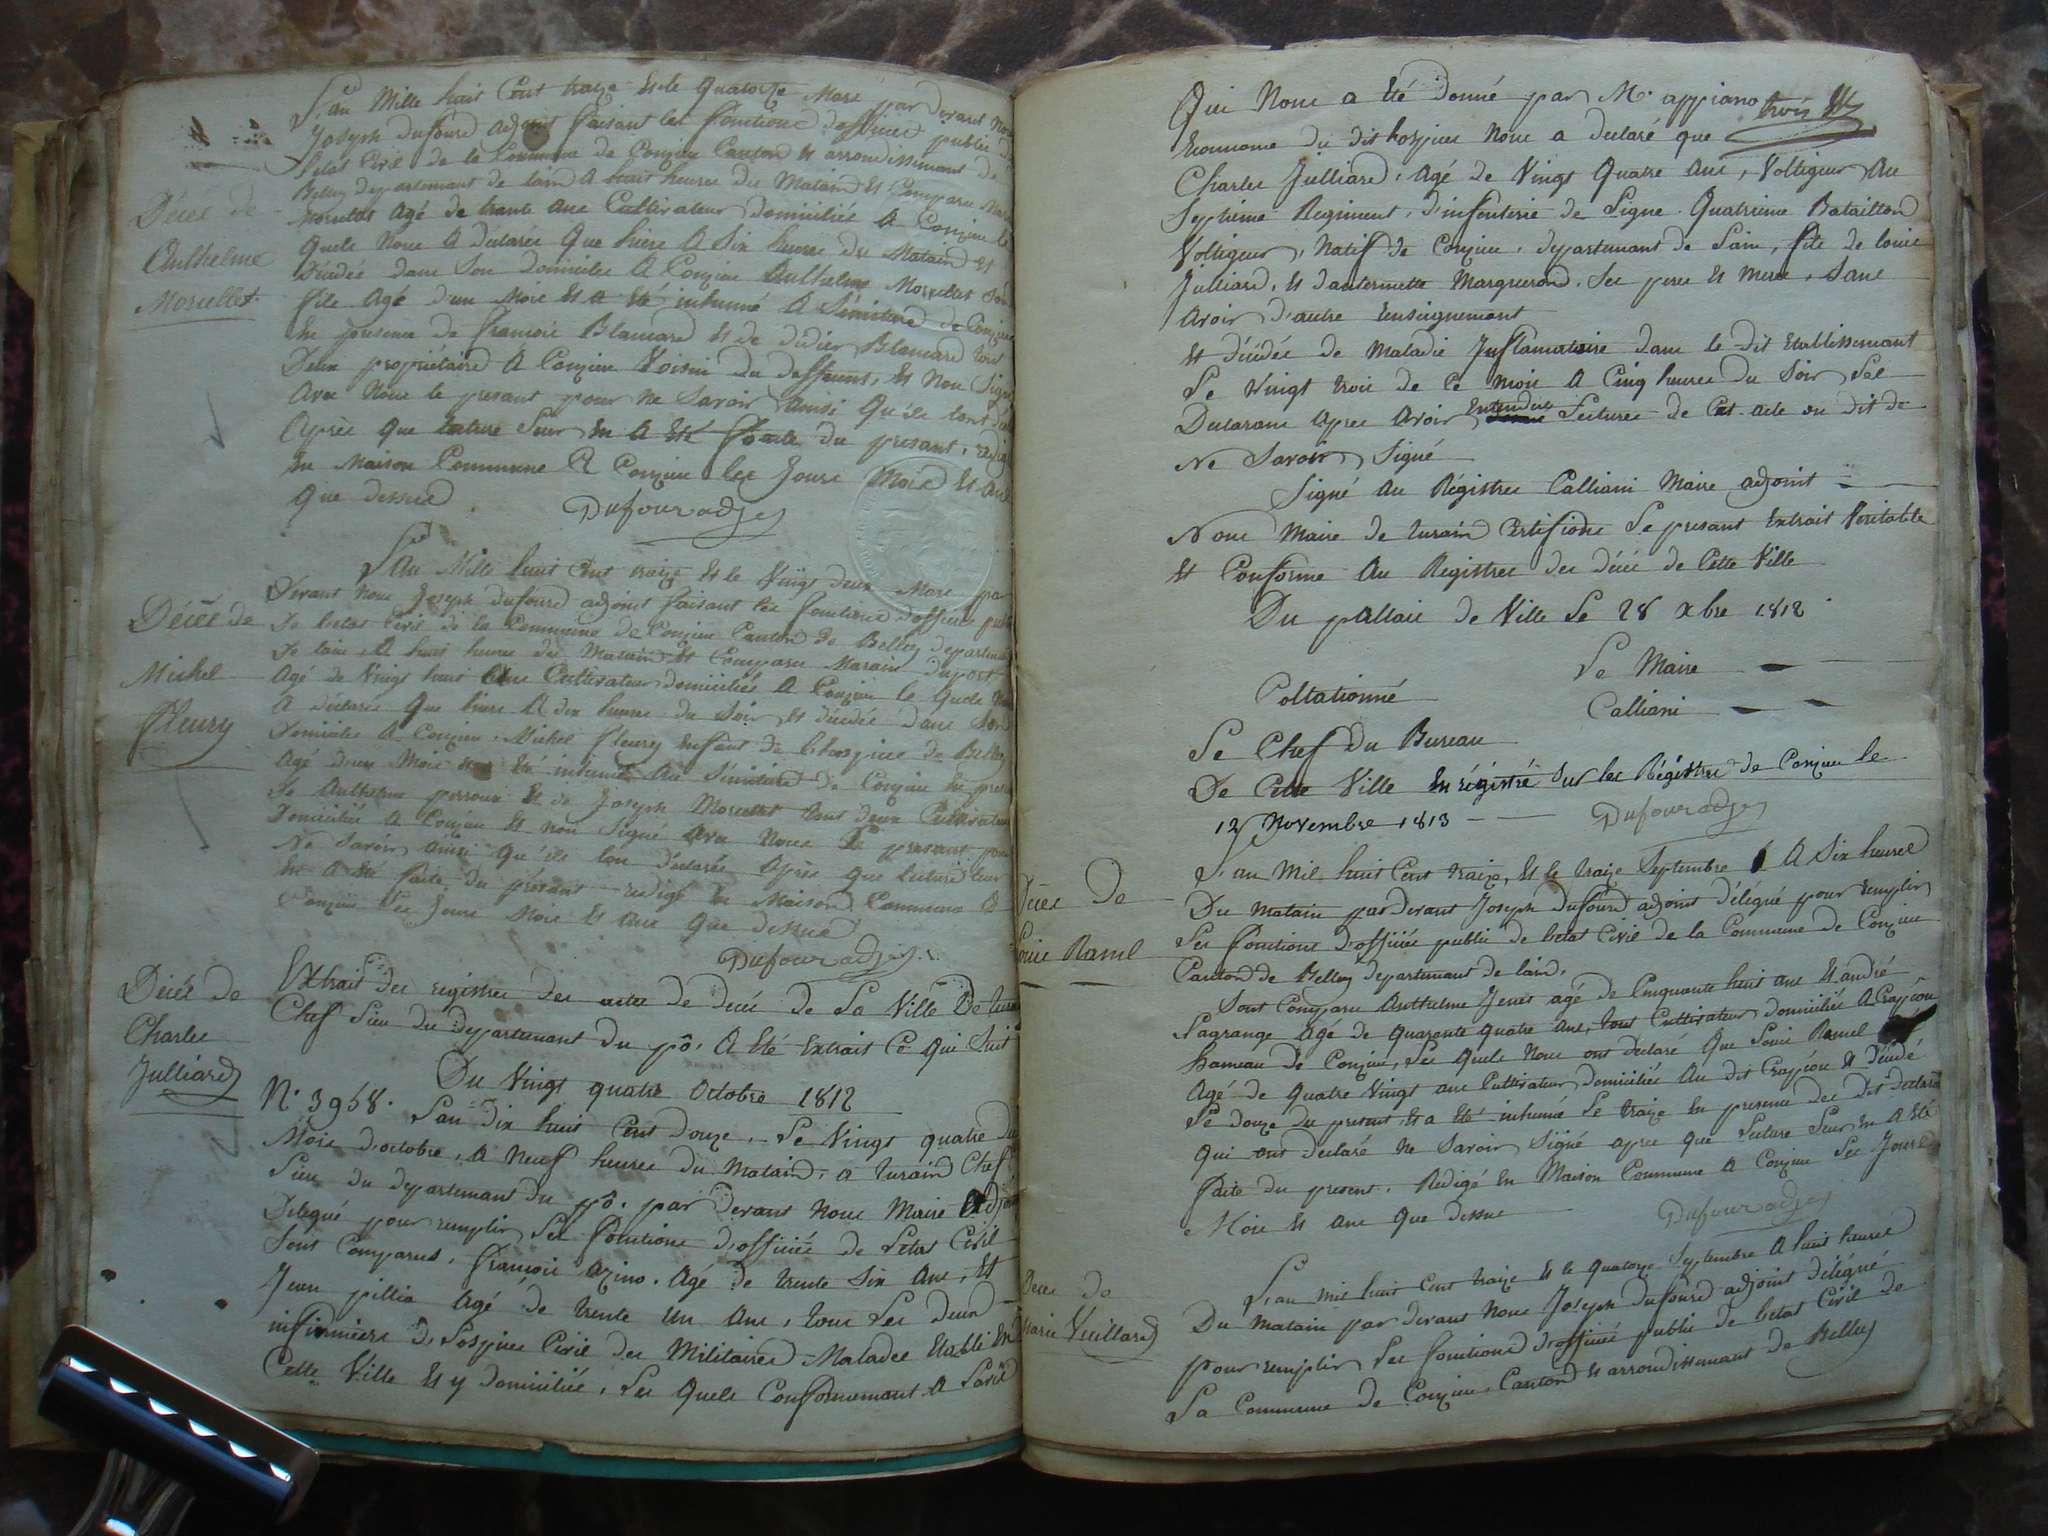 L'an Mille huit Cent traize Et le Quatorze Mars par devant Nous
Joseph Dufourd adjoint faisant les fonctions d'officier public de
letat Civil de la Commune de Conzieu Canton Et arrondissement de
Belley departement de lain A huit heures du Matain Et Comparu
Morellet Agé de trante Ans Cultivateur domicilié A Conzieu le
Quele Nous A déclarée Que hière A Six heures du Matain Et
Décédée dans Son domicilie A Conzieu Anthelme Morellet Son
fils Agé d'un Mois Et a Eté inhumé A Simitière de Conzieu
En presence de francois Blancard Et de didier Blancard tout
Deux propriétaire A Conzieu Voisin du deffeunt, Et Non Signé
Avec Nous le presant pour Ne Savoir Ainsi Qu'ils lont
Après Que lecture Leur En A Eté faite du presant, redigé
En Maison Commune A Conzieu les Jours Mois Et Ans
Que dessus
Dufour adj
Décès de
Anthelme
Morellet
L'an Mille huit Cent traize Et le Vingt deux Mars par
Devant Nous Joseph dufourd adjoint faisant les fonctions d'officier public
De letat Civil de la Commune de Conzieu Canton de Belley departement
De lain, A huit heures du Matain Et Comparu Marain Dupont
Agé de Vingt huit Ans Cultivateur domicilié A Conzieu le Quele Nous
A déclarée Que hiere A dix heures du Soir Et décédée dans Son
Domicilie A Conzieu Michel fleury Enfant de lhospice de Belley
Agé d'un Mois Et a Eté inhumé Au Simitière de Conzieu En presence
De Anthelme perroux Et de Joseph Morellet tout deux Cultivateur
Domiciliée A Conzieu Et non Signé Avec Nous Le presant pour
Ne Savoir ainsi Qu'ils lon déclarée Après Que lecture leur
En A Eté faite du présant redigé En Maison Commune A
Conzieu Les Jours Mois Et Ans Que dessus
Dufour adj
Décès de
Michel
fleury
Extrait des registres des actes de decés de La Ville De turain
Chef Lieu du departemant du pô. A Eté Extrait Ce Qui Suit
Du Vingt quatre Octobre 1812
N.º 3968. L'an dix huit Cent Douze, Le Vingt quatre du
Mois d'octobre, A Neuf heures du Matain, A turain Chef
Lieu du departemant du pô. par Devant Nous Maire Adjoint
Delegué pour remplir Les fonctions d'officiée de Letat Civil
Sont Comparus, francois azino. Agé de trente Six Ans, Et
Jean pillia Agé de trente Un Ans, tous Les deux
infirmiers d, Lospice Civil des Militaires Malades Etabli En
Cette Ville Et y domiciliée, Les Quels Conformemant A Lavis
Décès de
Charles
Julliard
Qui Nous a Eté Donné par M. appiano trois
Econnome du dit hospice Nous a declaré que
Charles Julliard, Agé de Vingt Quatre Ans, Voltigeur Au
Septième Regiment, d'infenterie de Ligne. Quatrieme Bataillon
Voltigeur, Natif de Conzieu, departemant de Lain, fils de louis
Julliard, Et dantermette Marguerond, Ses pere Et Mere, Sans
Avoir d'autre Enseignemant
Et décédée de Maladie Inflamatoire dans le dit Etablissemant
Le Vingt trois de Ce mois A Cinq heures du Soir, Les
Declarans apres Avoir Entendus Lecturee de Cet acte on dit de
Ne Savoir Signé
Signé Au Régistres Calliani Maire adjoint
Nous Maire de turain Certifions Le presant Extrait Veritable
Et Conforme Au Registres des décés de Cette Ville
Du pallais de Ville Le 28 Xbre 1812
Le Maire
Coltationné
Calliani
Le Chef Du Bureau
De Cette Ville Enrégistré Sur les Régistres de Conzieu le
12 Novembre 1813
Dufour adj
L'an Mil huit Cent traize, Et le traize Septembre A Six heures
Du Matain par devant Joseph dufourd adjoint délégué pour remplir
Les fonctions d'officiée public de letat Civil de la Commune de Conzieu
Canton de Belley departemant de laind,
Sont Comparu Anthelme Jenet agé de Cinquante huit ans Et andré
Lagrange Agé de Quarente quatre Ans, tout Cultivateur domiciliée A Crapéou
hameau de Conzieu, Les Quels Nous ont declaré Que Louis Ramel
Agé de Quatre Vingt ans Cultivateur domiciliée Au dit Crapéou Et décidé
Le douze du present, Et a Eté inhumé Le traize En presence des dit declarans
Qui ont declaré Ne Savoir Signé apres Que Lecture Leur En A Eté
faite du present. Redigé En Maison Commune A Conzieu Les Jours
Mois Et Ans Que dessus
Dufour adj
Décès De
Louis Ramel
L'an mil huit Cent traize Et le Quatorze Septembre A huit heures
Du Matain par devant Nous Joseph Dufourd adjoint délégué
pour remplir Les fonctions d'officiée public de letat Civil de
La Commune de Conzieu, Canton Et arrondissemant de Belley
Décès de
Marie Vuillard